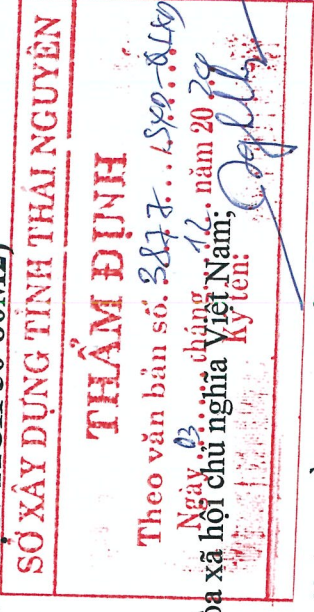 SỞ XÂY DỰNG TỈNH THÁI NGUYÊN
THẨM ĐỊNH
Theo văn bản số: 3877 /SXD-QLXD
Ngày 03 tháng 12 năm 2024
òa xã hội chủ nghĩa Việt Nam;
Ký tên: